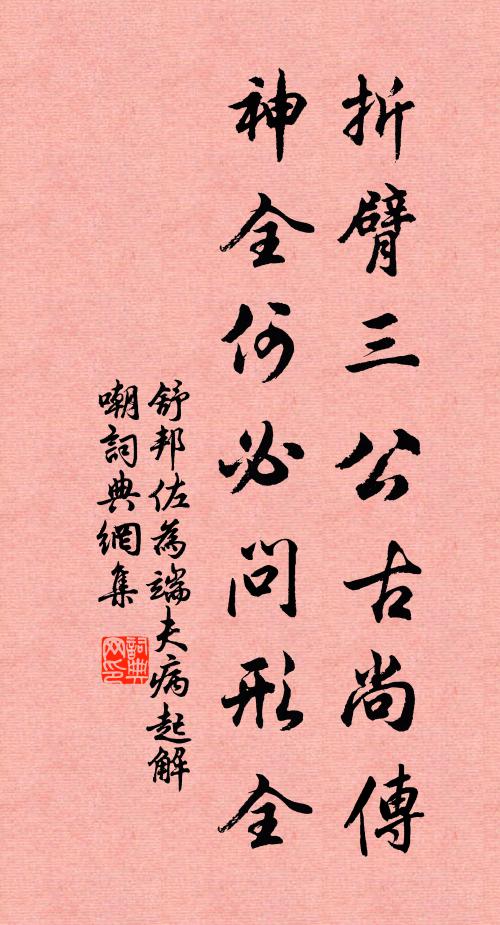 折臂三公古尚傳
神全何必問形全
舒邦佐為端夫病起解
嘲詞典網集
詞典
网印